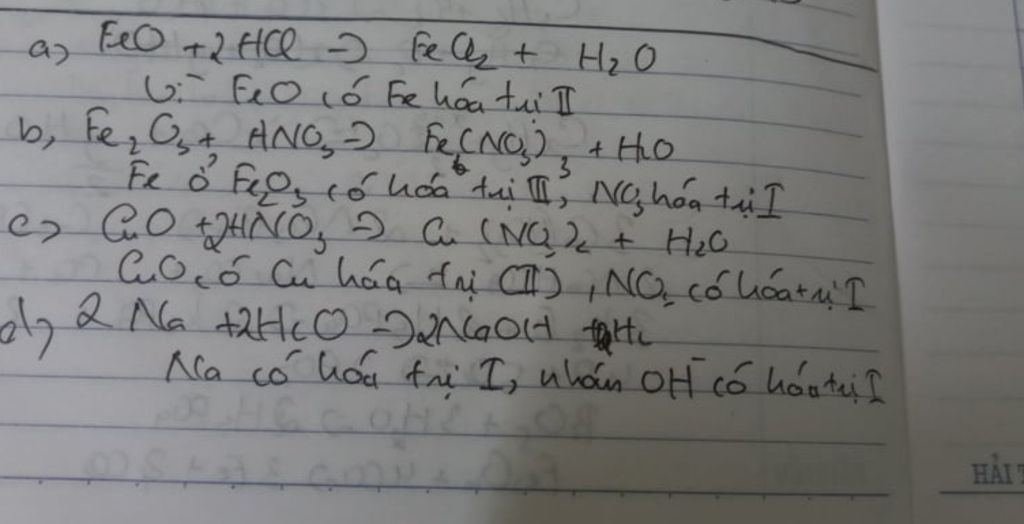 a) FeO + 2HCl → FeCl₂ + H₂O
Vì FeO có Fe hóa trị II
b, Fe₂O₃ + HNO₃ → Fe(NO₃)₃ + H₂O
Fe ở Fe₂O₃ có hóa trị III, NO₃ hóa trị I
c) CuO + 2HNO₃ → Cu(NO₃)₂ + H₂O
CuO có Cu hóa trị (II), NO₃ có hóa trị I
d, 2Na + 2H₂O → 2NaOH + H₂
Na có hóa trị I, nhóm OH⁻ có hóa trị I
HẢI